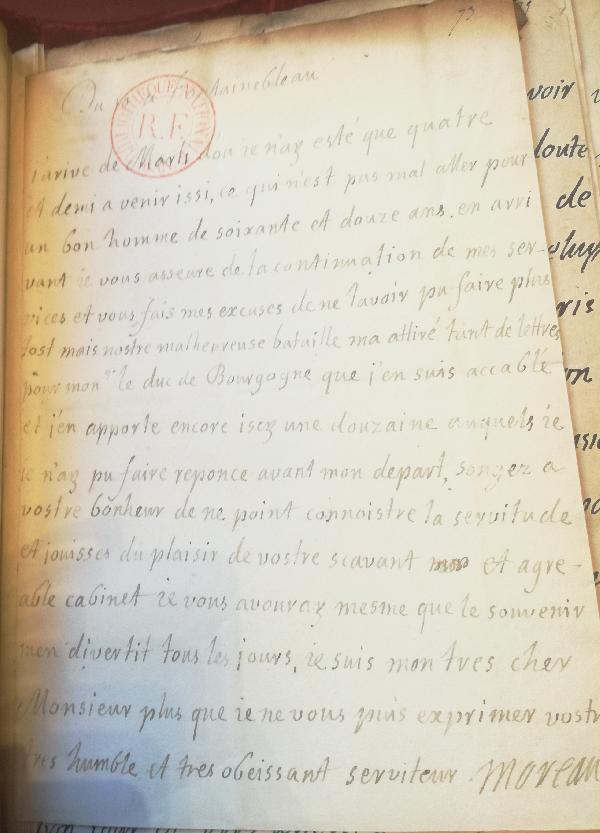 73
Du Fontainebleau
BIBLIOTHEQUE NATIONALE
R.F.
j'arive de Marli dou ie n'ay esté que quatre
et demi a venir issi, ce qui n'est pas mal aller pour
un bon homme de soixante et douze ans. en arri
vant ie vous asseure de la continuation de mes ser-
vices et vous fais mes excuses de ne lavoir pu faire plus
tost mais nostre malheureuse bataille ma attiré tant de lettres
pour monsr le duc de Bourgogne que j'en suis accablé
et j'en apporte encore isey une douzaine auquels ie
ie n'ay pu faire reponce avant mon depart, songez a
vostre bonheur de ne point connoistre la servitude
et jouisses du plaisir de vostre scavant et agre-
able cabinet ie vous avouray mesme que le souvenir
men divertit tous les jours, ie suis mon tres cher
Monsieur plus que ie ne vous puis exprimer vostr
tres humble et tres obeissant serviteur Moreau
voir
doute
de